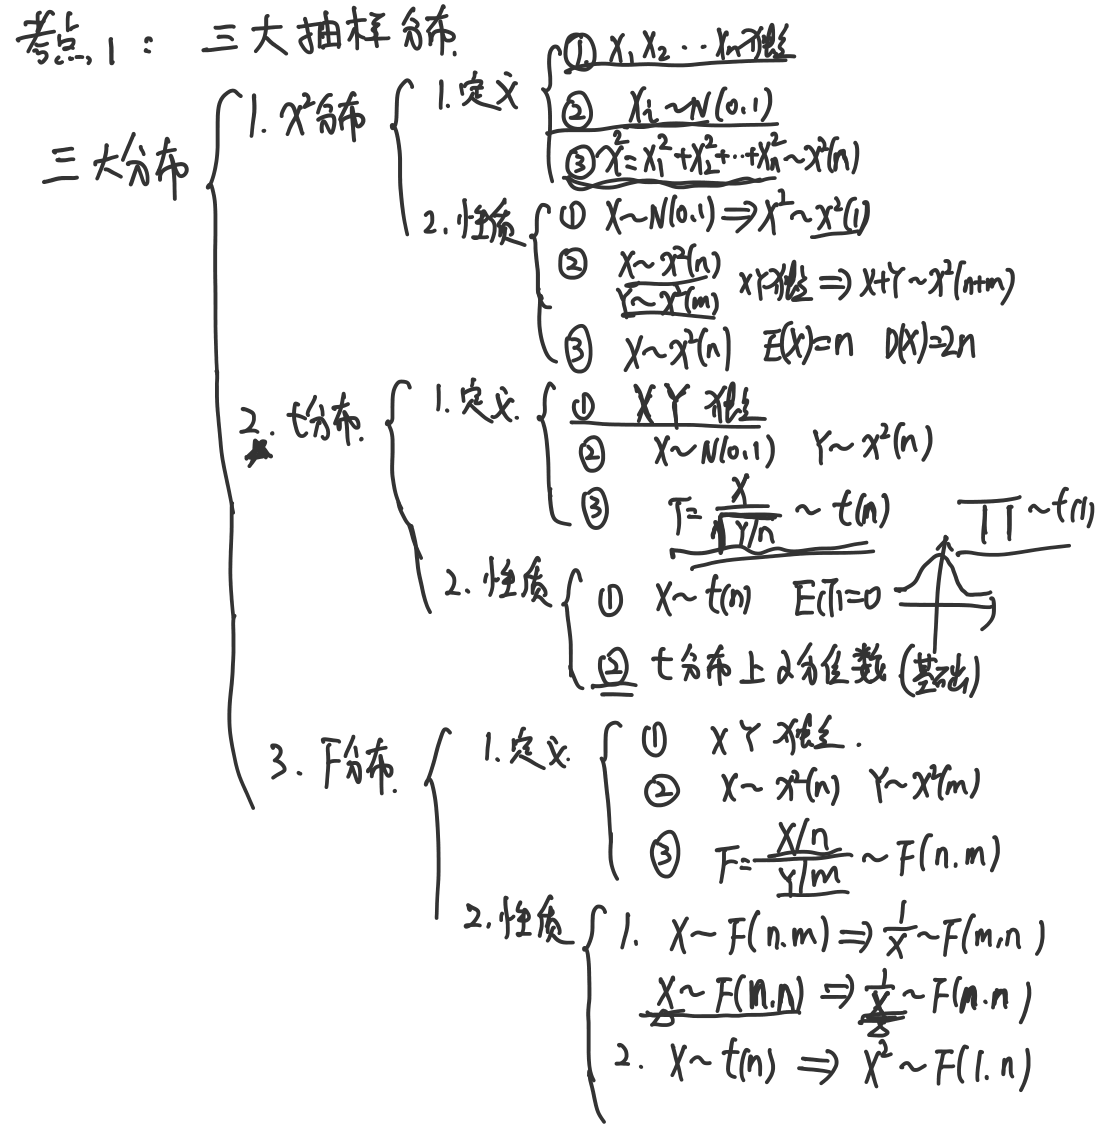 考点1： 三大抽样分布.
三大分布
1. χ²分布
1.定义
① X₁ X₂ ‥ Xₙ 独立
② Xᵢ ~ N(0.1)
③ χ²=X₁²+X₂²+…+Xₙ² ~ χ²(n)
2.性质
① X~N(0.1) ⇒ X² ~ χ²(1)
② X~χ²(n)
Y~χ²(m)
XY独立 ⇒ X+Y ~ χ²(n+m)
③ X~χ²(n) E(X)=n D(X)=2n
2. t分布.
1.定义.
① X Y 独立
② X~N(0.1) Y~χ²(n)
③ T= X/√(Y/n) ~ t(n)
~t(1)
2.性质
① X~t(n) E(T)=0
② t分布上α分位数 (基础)
3. F分布.
1.定义.
① X Y 独立.
② X~χ²(n) Y~χ²(m)
③ F= (X/n)/(Y/m) ~ F(n.m)
2.性质
1. X~F(n.m) ⇒ 1/X ~ F(m,n)
X~F(n.n) ⇒ 1/X ~ F(n.n)
2. X~t(n) ⇒ X² ~ F(1.n)